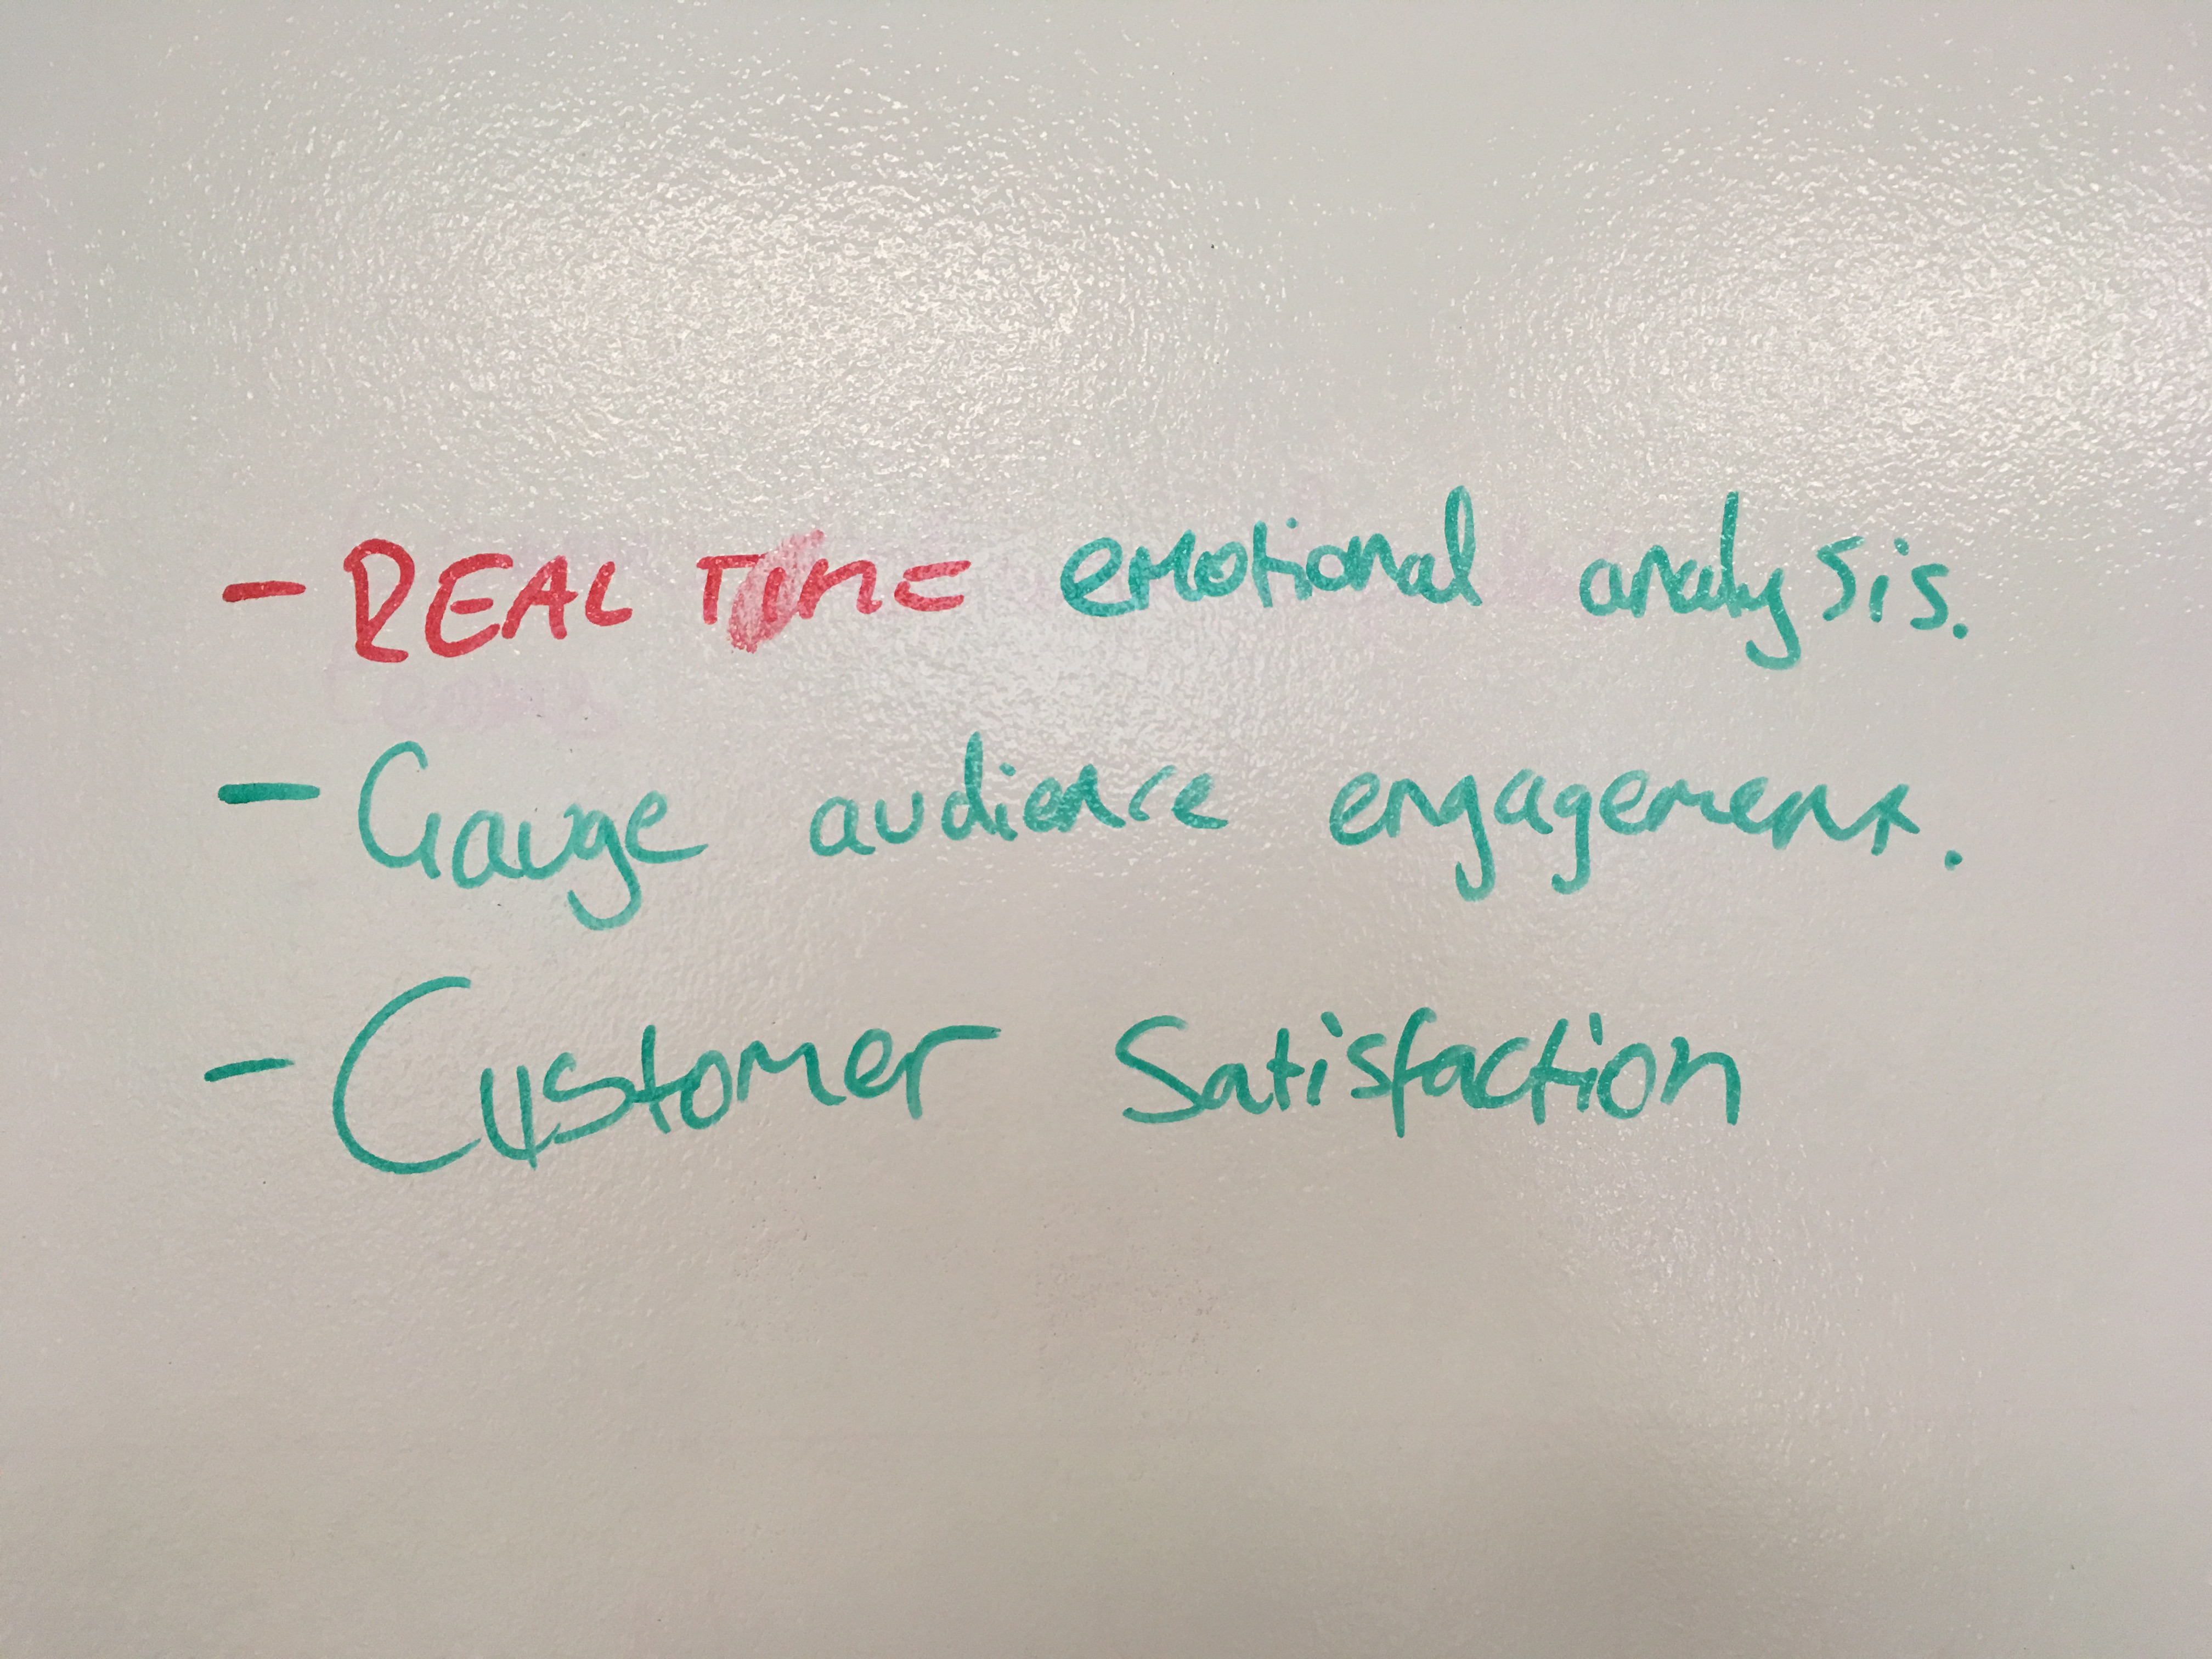 - REAL TIME emotional analysis.
- Gauge audience engagement.
- Customer Satisfaction